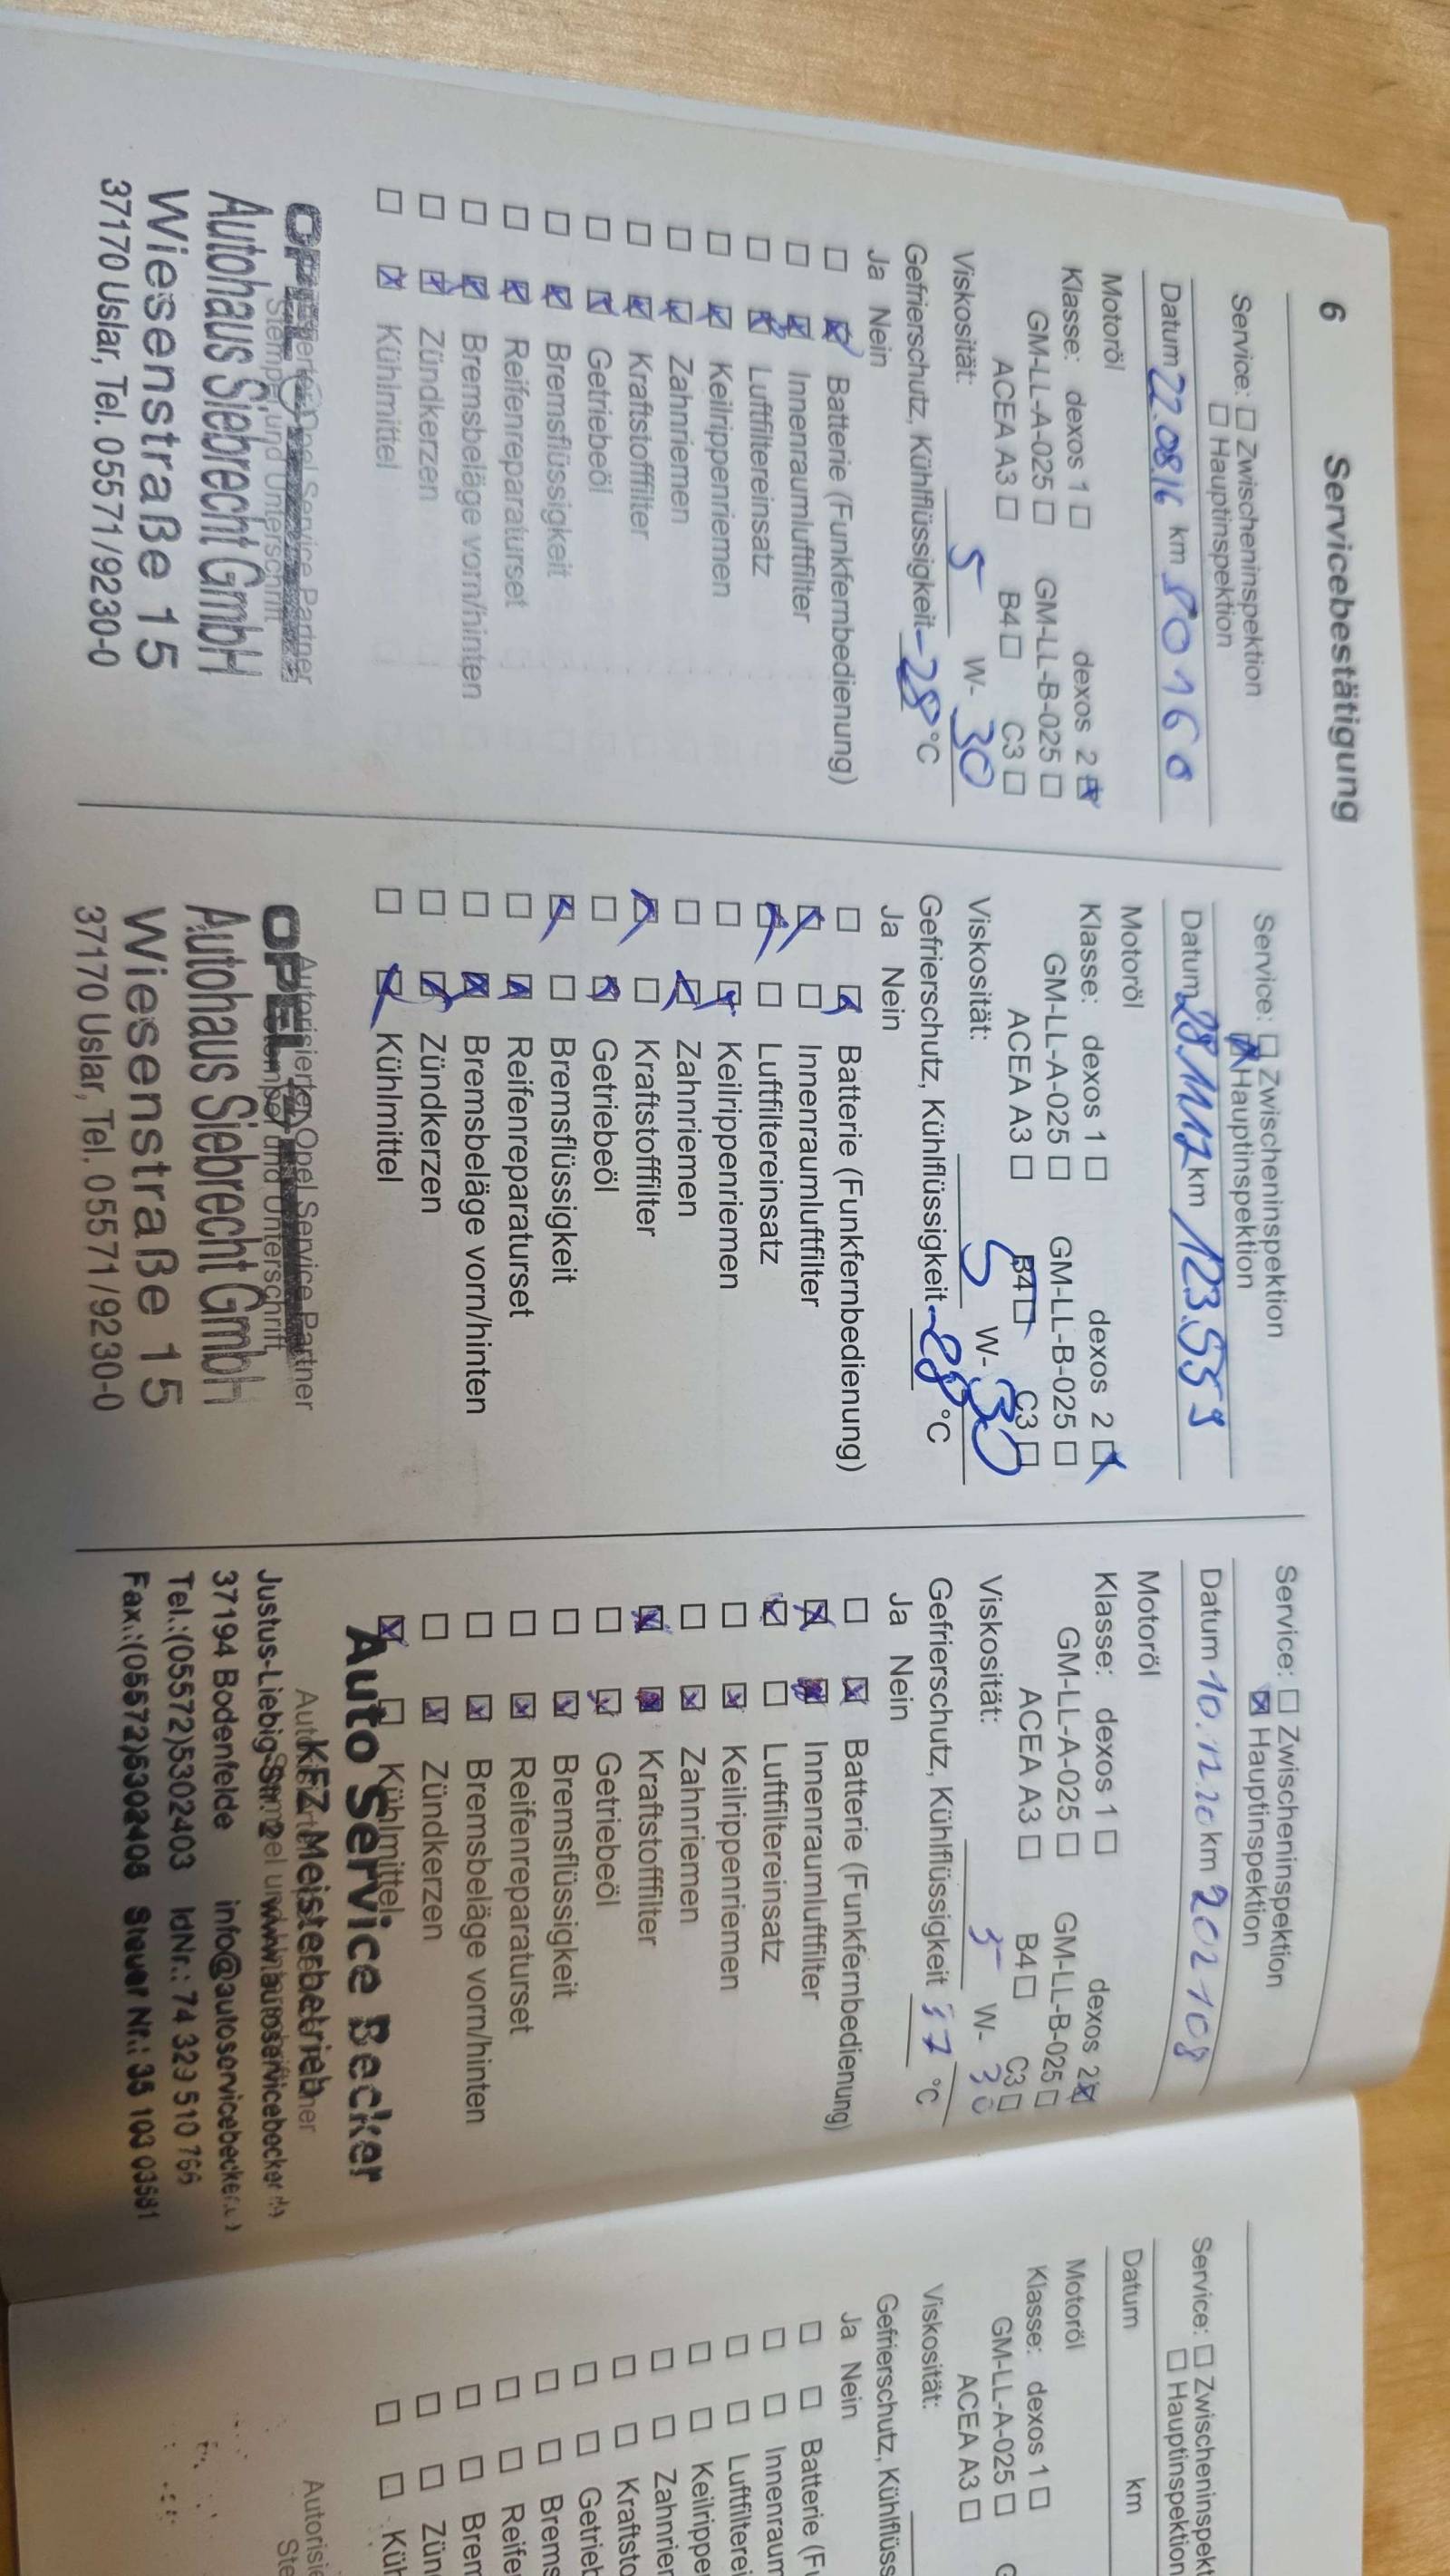 6 Servicebestätigung
Service: ☐ Zwischeninspektion
☐ Hauptinspektion
Datum 22.08.16 km 80160
Motoröl
Klasse: dexos 1 ☐ dexos 2 ☒
GM-LL-A-025 ☐ GM-LL-B-025 ☐
ACEA A3 ☐ B4 ☐ C3 ☐
Viskosität: 5 W- 30
Gefrierschutz, Kühlflüssigkeit -28 °C
Ja Nein
☐ ☒ Batterie (Funkfernbedienung)
☐ ☒ Innenraumluftfilter
☐ ☒ Luftfiltereinsatz
☐ ☒ Keilrippenriemen
☐ ☒ Zahnriemen
☐ ☒ Kraftstofffilter
☐ ☒ Getriebeöl
☐ ☒ Bremsflüssigkeit
☐ ☒ Reifenreparaturset
☐ ☒ Bremsbeläge vorn/hinten
☐ ☒ Zündkerzen
☐ ☒ Kühlmittel
Opel Service Partner
Stempel und Unterschrift
OPEL
Autohaus Siebrecht GmbH
Wiesenstraße 15
37170 Uslar, Tel. 05571/9230-0
Service: ☐ Zwischeninspektion
☒ Hauptinspektion
Datum 28.11.17 km 123.559
Motoröl
Klasse: dexos 1 ☐ dexos 2 ☒
GM-LL-A-025 ☐ GM-LL-B-025 ☐
ACEA A3 ☐ B4 ☐ C3 ☐
Viskosität: 5 W- 30
Gefrierschutz, Kühlflüssigkeit -28 °C
Ja Nein
☐ ☒ Batterie (Funkfernbedienung)
☒ ☐ Innenraumluftfilter
☒ ☐ Luftfiltereinsatz
☐ ☒ Keilrippenriemen
☐ ☒ Zahnriemen
☒ ☐ Kraftstofffilter
☐ ☒ Getriebeöl
☒ ☐ Bremsflüssigkeit
☐ ☒ Reifenreparaturset
☐ ☒ Bremsbeläge vorn/hinten
☐ ☒ Zündkerzen
☐ ☒ Kühlmittel
Autorisierter Opel Service Partner
Stempel und Unterschrift
OPEL
Autohaus Siebrecht GmbH
Wiesenstraße 15
37170 Uslar, Tel. 05571/9230-0
Service: ☐ Zwischeninspektion
☒ Hauptinspektion
Datum 10.12.20 km 202108
Motoröl
Klasse: dexos 1 ☐ dexos 2 ☒
GM-LL-A-025 ☐ GM-LL-B-025 ☐
ACEA A3 ☐ B4 ☐ C3 ☐
Viskosität: 5 W- 30
Gefrierschutz, Kühlflüssigkeit 37 °C
Ja Nein
☐ ☒ Batterie (Funkfernbedienung)
☒ ☒ Innenraumluftfilter
☒ ☐ Luftfiltereinsatz
☐ ☒ Keilrippenriemen
☐ ☒ Zahnriemen
☒ ☒ Kraftstofffilter
☐ ☒ Getriebeöl
☐ ☒ Bremsflüssigkeit
☐ ☒ Reifenreparaturset
☐ ☒ Bremsbeläge vorn/hinten
☐ ☒ Zündkerzen
☒ ☐ Kühlmittel
Auto Service Becker
KFZ Meisterbetrieb
Justus-Liebig-Str. 2 www.autoservicebecker
37194 Bodenfelde info@autoservicebecker
Tel.:(05572)5302403 IdNr.: 74 329 510 766
Fax.:(05572)5302406 Steuer Nr.: 35 103 03581
Service: ☐ Zwischeninspekt
☐ Hauptinspektion
Datum km
Motoröl
Klasse: dexos 1 ☐
GM-LL-A-025 ☐ G
ACEA A3 ☐
Viskosität:
Gefrierschutz, Kühlflüss
Ja Nein
☐ ☐ Batterie (Fu
☐ ☐ Innenraum
☐ ☐ Luftfilterei
☐ ☐ Keilrippe
☐ ☐ Zahnrier
☐ ☐ Kraftsto
☐ ☐ Getrieb
☐ ☐ Brems
☐ ☐ Reife
☐ ☐ Brem
☐ ☐ Zün
☐ ☐ Küh
Autorisie
Ste